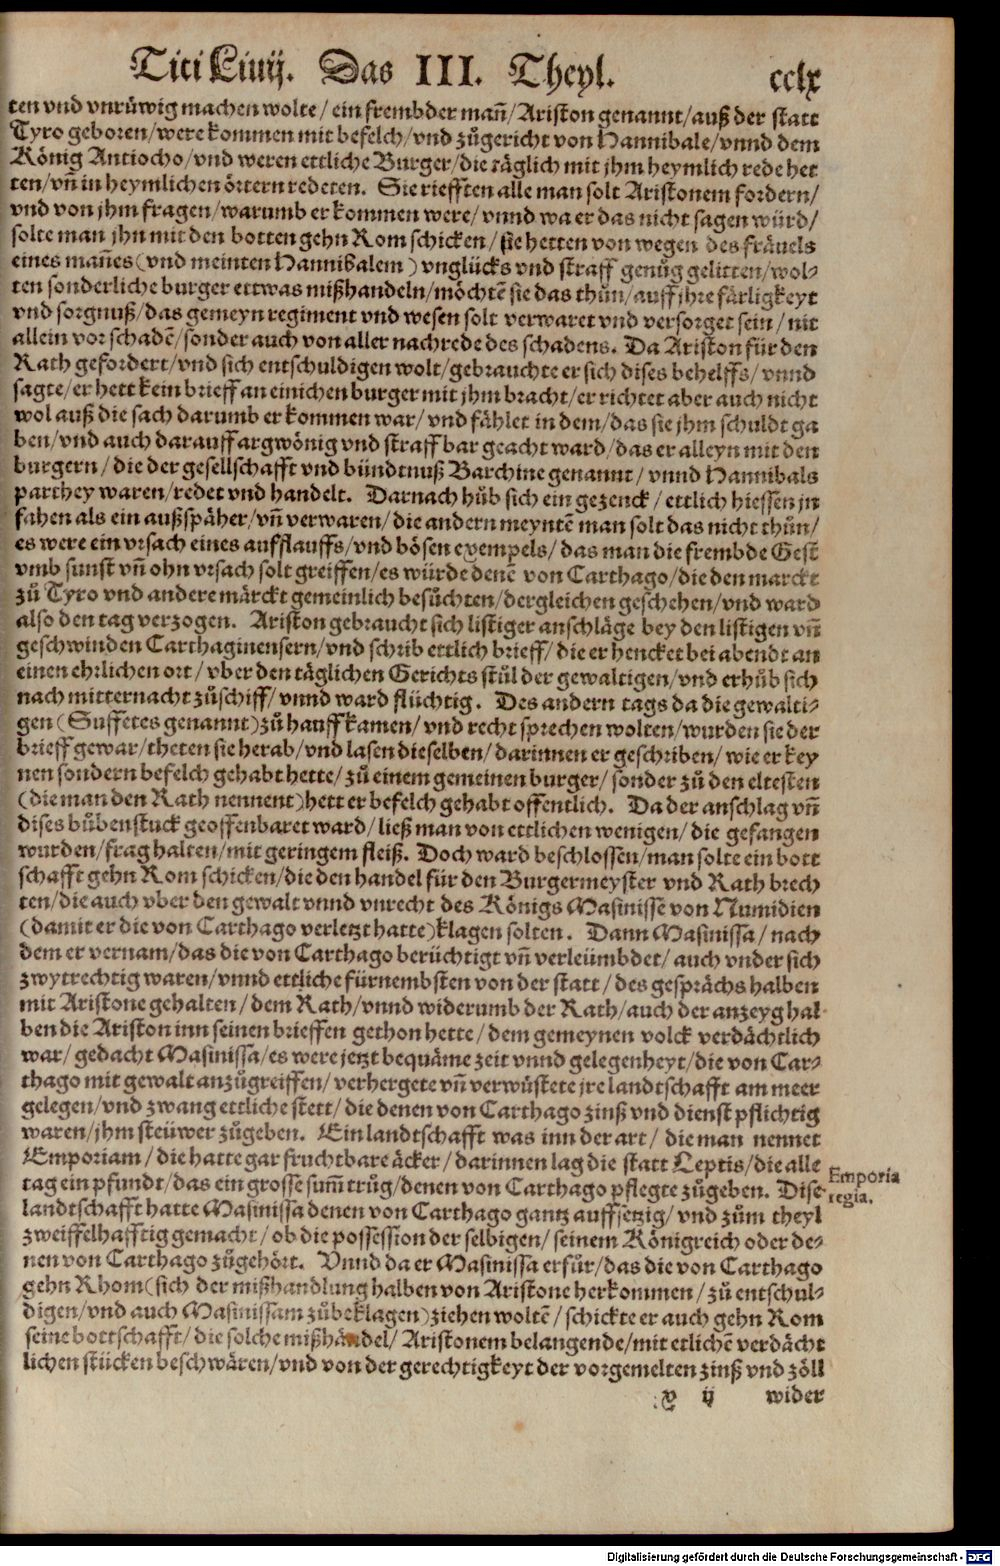 Titi Liuij. Das III. Theyl. cclx
ten vnd vnrůwig machen wolte/ ein frembder mañ/ Ariston genannt/ auß der statt
Tyro geboren/ were kommen mit befelch/ vnd zůgericht von Hannibale/ vnnd dem
König Antiocho/ vnd weren ettliche Burger/ die täglich mit jhm heymlich rede het
ten/ vñ in heymlichen örtern redeten. Sie riefften alle man solt Aristonem fordern/
vnd von jhm fragen/ warumb er kommen were/ vnnd wa er das nicht sagen würd/
solte man jhn mit den botten gehn Rom schicken/ sie hetten von wegen des fräuels
eines mañes (vnd meinten Hannibalem) vnglücks vnd straff genůg gelitten/ wol-
ten sonderliche burger ettwas mißhandeln/ möchtē sie das thůn/ auff jhre färligkeyt
vnd sorgnuß/ das gemeyn regiment vnd wesen solt verwaret vnd versorget sein/ nit
allein vor schadē/ sonder auch von aller nachrede des schadens. Da Ariston für den
Rath gefordert/ vnd sich entschuldigen wolt/ gebrauchte er sich dises behelffs/ vnnd
sagte/ er hett kein brieff an einichen burger mit jhm bracht/ er richtet aber auch nicht
wol auß die sach darumb er kommen war/ vnd fählet in dem/ das sie jhm schuldt ga
ben/ vnd auch darauff argwönig vnd straffbar geacht ward/ das er alleyn mit den
burgern/ die der gesellschafft vnd bündtnuß Barchine genannt/ vnnd Hannibals
parthey waren/ redet vnd handelt. Darnach hůb sich ein gezenck/ ettlich hiessen jn
fahen als ein außspäher/ vñ verwaren/ die andern meyntē man solt das nicht thůn/
es were ein vrsach eines aufflauffs/ vnd bösen exempels/ das man die frembde Gest
vmb sunst vñ ohn vrsach solt greiffen/ es würde denē von Carthago/ die den marckt
zů Tyro vnd andere märckt gemeinlich besůchten/ dergleichen geschehen/ vnd ward
also den tag verzogen. Ariston gebraucht sich listiger anschläge bey den listigen vñ
geschwinden Carthaginensern/ vnd schrib ettlich brieff/ die er hencket bei abendt an
einen ehrlichen ort/ vber den täglichen Gerichts stůl der gewaltigen/ vnd erhůb sich
nach mitternacht zůschiff/ vnnd ward flüchtig. Des andern tags da die gewalti-
gen (Suffetes genannt) zů hauff kamen/ vnd recht sprechen wolten/ wurden sie der
brieff gewar/ theten sie herab/ vnd lasen dieselben/ darinnen er geschriben/ wie er key
nen sondern befelch gehabt hette/ zů einem gemeinen burger/ sonder zů den eltesten
(die man den Rath nennent) hett er befelch gehabt offentlich. Da der anschlag vñ
dises bůbenstuck geoffenbaret ward/ ließ man von ettlichen wenigen/ die gefangen
wurden/ frag halten/ mit geringem fleiß. Doch ward beschlossen/ man solte ein bott
schafft gehn Rom schicken/ die den handel für den Burgermeyster vnd Rath brech
ten/ die auch vber den gewalt vnnd vnrecht des Königs Masinisse von Numidien
(damit er die von Carthago verletzt hatte) klagen solten. Dann Masinissa/ nach
dem er vernam/ das die von Carthago berüchtigt vñ verleümbdet/ auch vnder sich
zwytrechtig waren/ vnnd ettliche fürnembsten von der statt/ des gesprächs halben
mit Aristone gehalten/ dem Rath/ vnnd widerumb der Rath/ auch der anzeyg hal
ben die Ariston inn seinen brieffen gethon hette/ dem gemeynen volck verdächtlich
war/ gedacht Masinissa/ es were jetzt bequäme zeit vnnd gelegenheyt/ die von Car-
thago mit gewalt anzůgreiffen/ verhergete vñ verwüstete jre landtschafft am meer
gelegen/ vnd zwang ettliche stett/ die denen von Carthago zinß vnd dienst pflichtig
waren/ jhm steüwer zůgeben. Ein landtschafft was inn der art/ die man nennet
Emporiam/ die hatte gar fruchtbare äcker/ darinnen lag die statt Leptis/ die alle
tag ein pfundt/ das ein grosse sum̄ trůg/ denen von Carthago pflegte zůgeben. Dise
Emporia
regia.
landtschafft hatte Masinissa denen von Carthago gantz auffsetzig/ vnd zům theyl
zweiffelhafftig gemacht/ ob die possession der selbigen/ seinem Königreich oder de-
nen von Carthago zůgehört. Vnnd da er Masinissa erfůr/ das die von Carthago
gehn Rhom (sich der mißhandlung halben von Aristone herkommen/ zů entschul-
digen/ vnd auch Masinissam zůbeklagen) ziehen woltē/ schickte er auch gehn Rom
seine bottschafft/ die solche mißhandel/ Aristonem belangende/ mit etlichē verdächt
lichen stücken beschwären/ vnd von der gerechtigkeyt der vorgemelten zinß vnd zöll
x ij wider
Digitalisierung gefördert durch die Deutsche Forschungsgemeinschaft - DFG